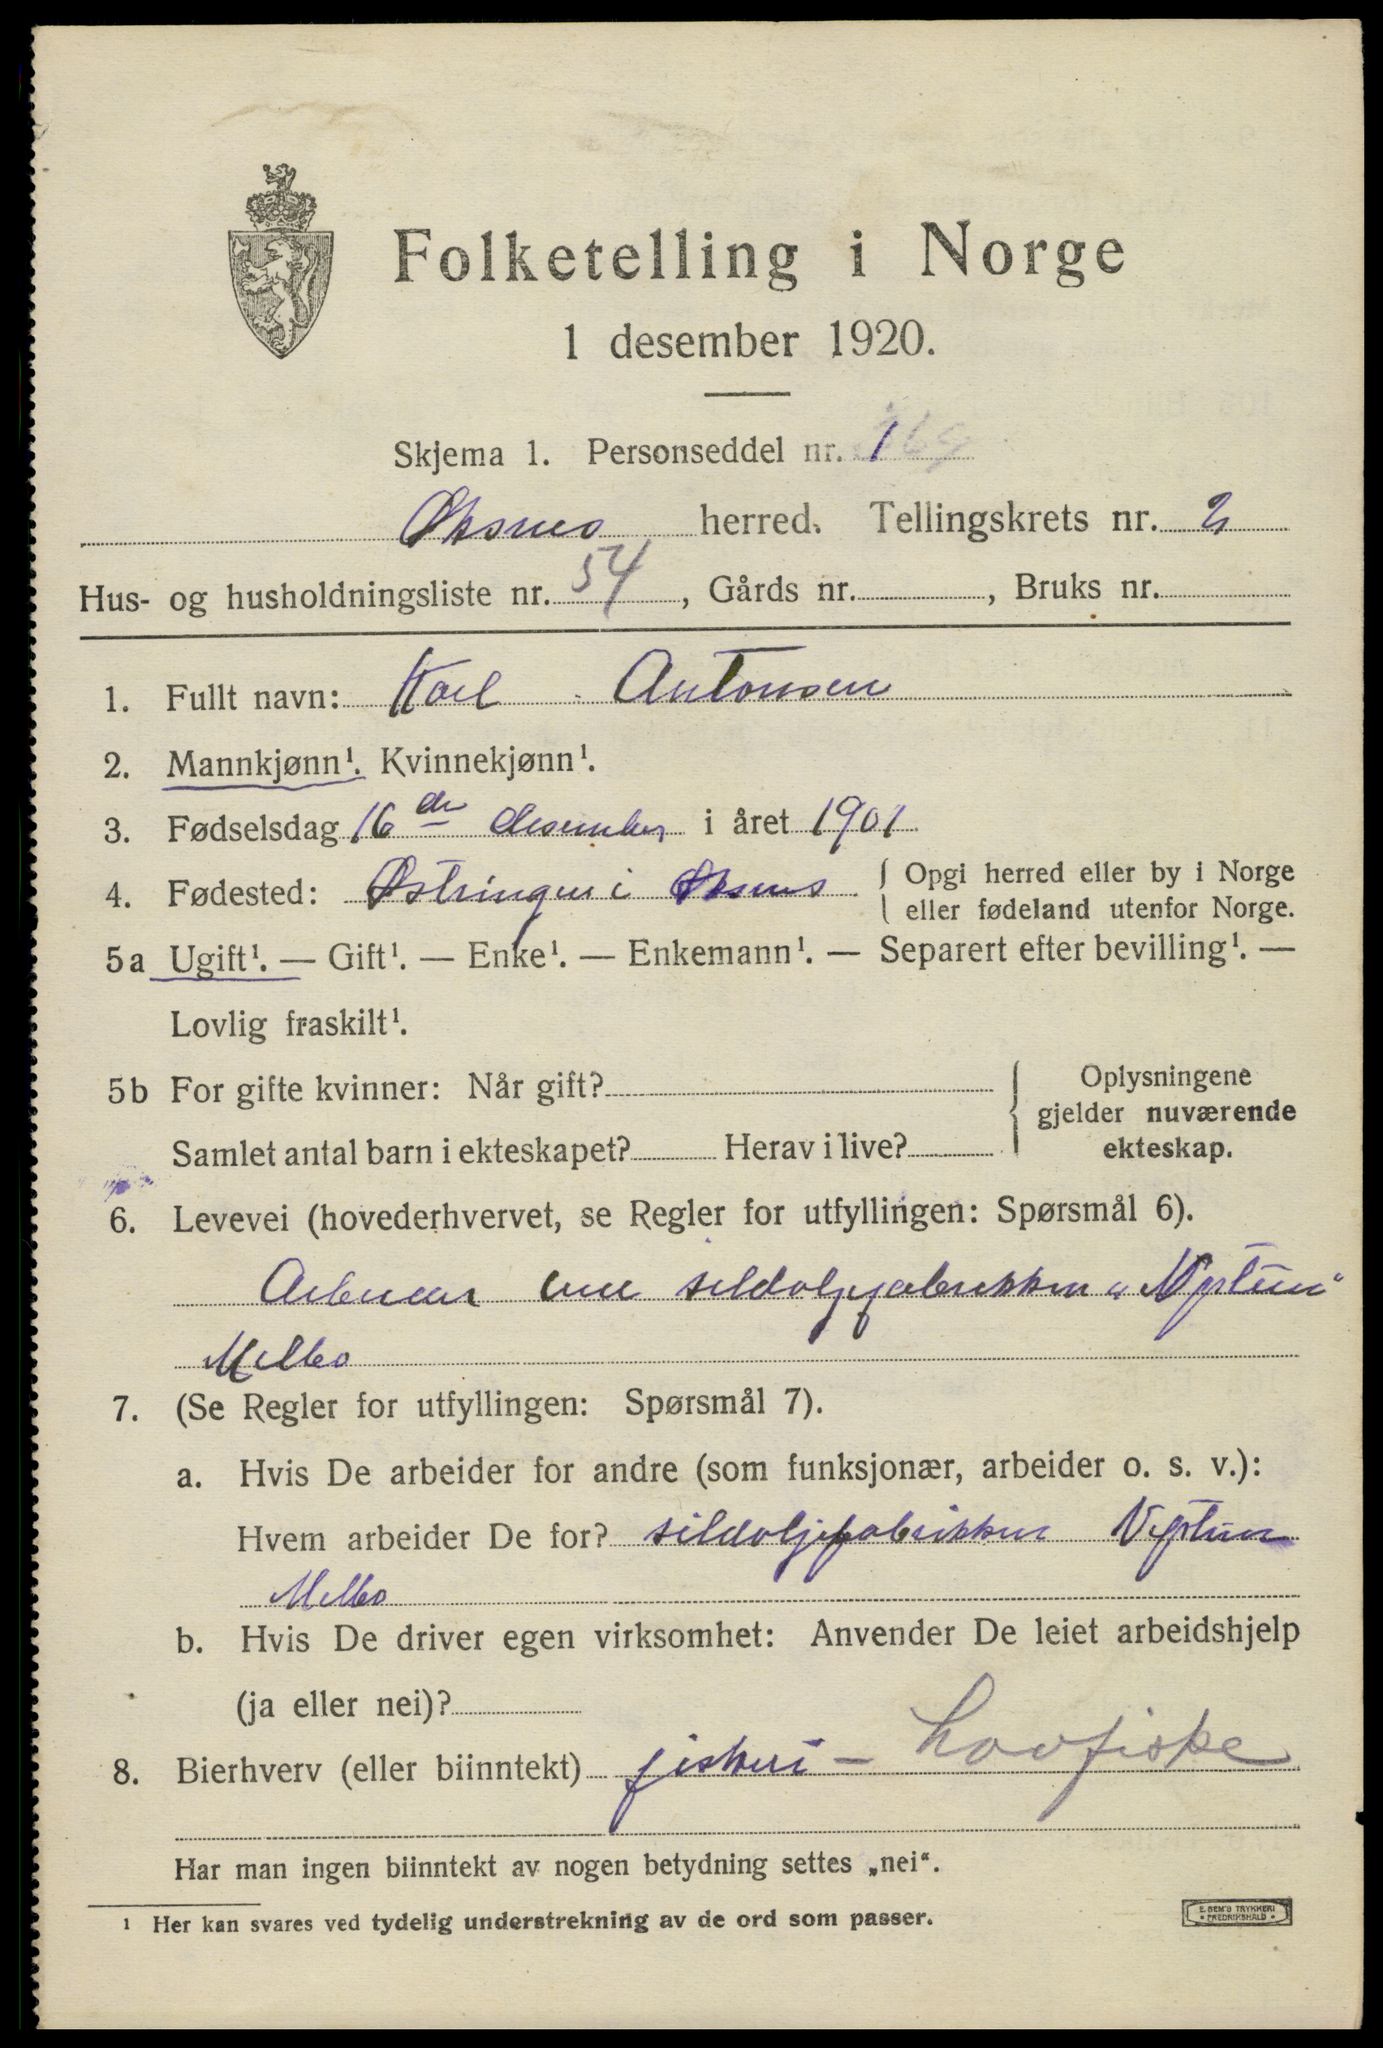 Folketelling i Norge
1 desember 1920.
Skjema 1. Personseddel nr. 1
Øksnes herred. Tellingskrets nr. 2
Hus- og husholdningsliste nr. 54, Gårds nr. , Bruks nr.
1. Fullt navn: Karl Antonsen
2. Mannkjønn¹. Kvinnekjønn¹.
3. Fødselsdag 16 de desember i året 1901
4. Fødested: i Øksnes { Opgi herred eller by i Norge
eller fødeland utenfor Norge.
5a Ugift¹. — Gift¹. — Enke¹. — Enkemann¹. — Separert efter bevilling¹. —
Lovlig fraskilt¹.
5b For gifte kvinner: Når gift? { Oplysningene
gjelder nuværende
Samlet antal barn i ekteskapet? Herav i live? ekteskap.
6. Levevei (hovederhvervet, se Regler for utfyllingen: Spørsmål 6).
Arbeider ved sildoljefabrikken „Neptun“
Melbo
7. (Se Regler for utfyllingen: Spørsmål 7).
a. Hvis De arbeider for andre (som funksjonær, arbeider o. s. v.):
Hvem arbeider De for? sildoljefabrikken Neptun
Melbo
b. Hvis De driver egen virksomhet: Anvender De leiet arbeidshjelp
(ja eller nei)?
8. Bierhverv (eller biinntekt) fiskeri – Lovfiske
Har man ingen biinntekt av nogen betydning settes „nei“.
¹ Her kan svares ved tydelig understrekning av de ord som passer.
E. SEM'S TRYKKERI
• FREDRIKSHALD •